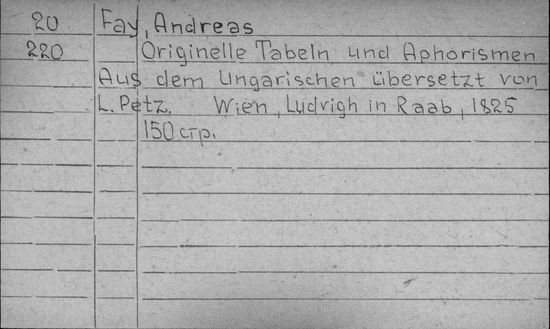 20 Fay, Andreas
220 Originelle Tabeln und Aphorismen
Aus dem Ungarischen übersetzt von
L. Petz. Wien, Ludvigh in Raab, 1825
150 стр.